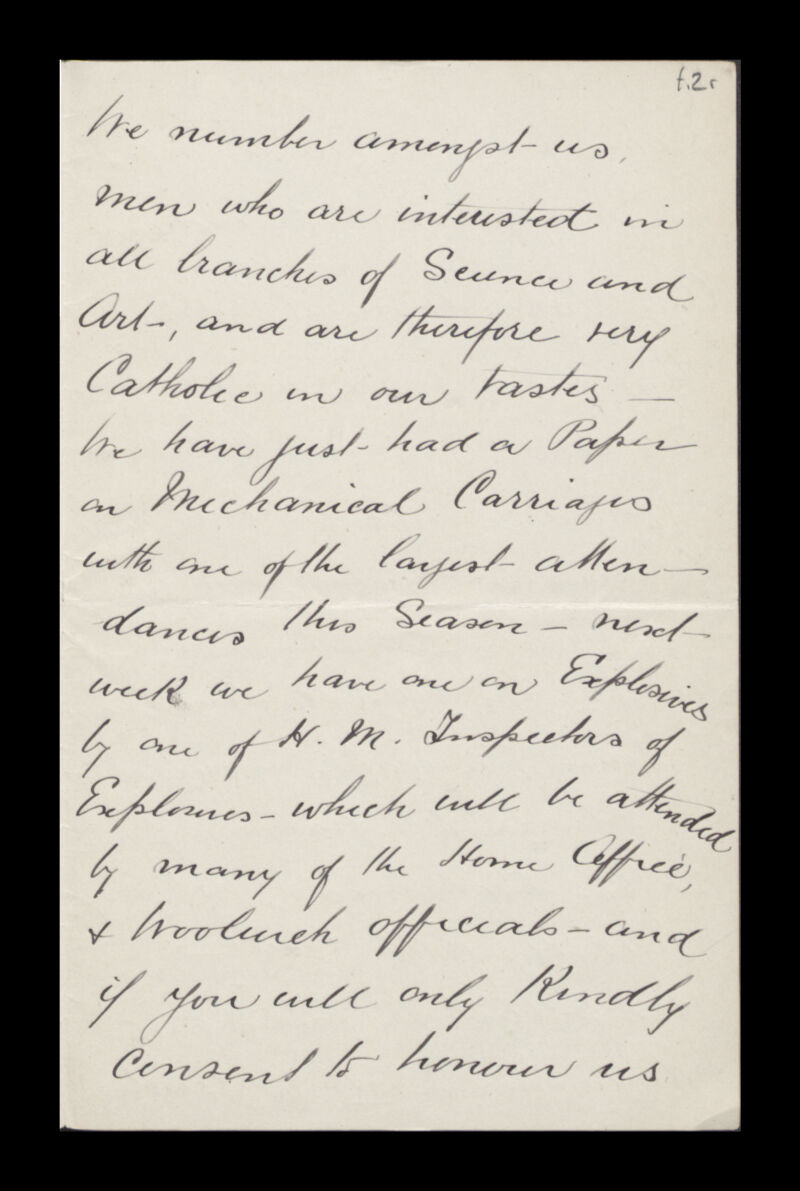 f.2r
We number amongst us,
men who are interested in
all branches of Science and
Art-, and are therefore very
Catholic in our tastes —
We have just had a Paper
on Mechanical Carriages
with one of the largest atten-
dances this Season - next
week we have one on Explosives
by one of H. M. Inspectors of
Explosives - which will be attended
by many of the Home Office,
& Woolwich officials - and
if you will only Kindly
Consent to honour us